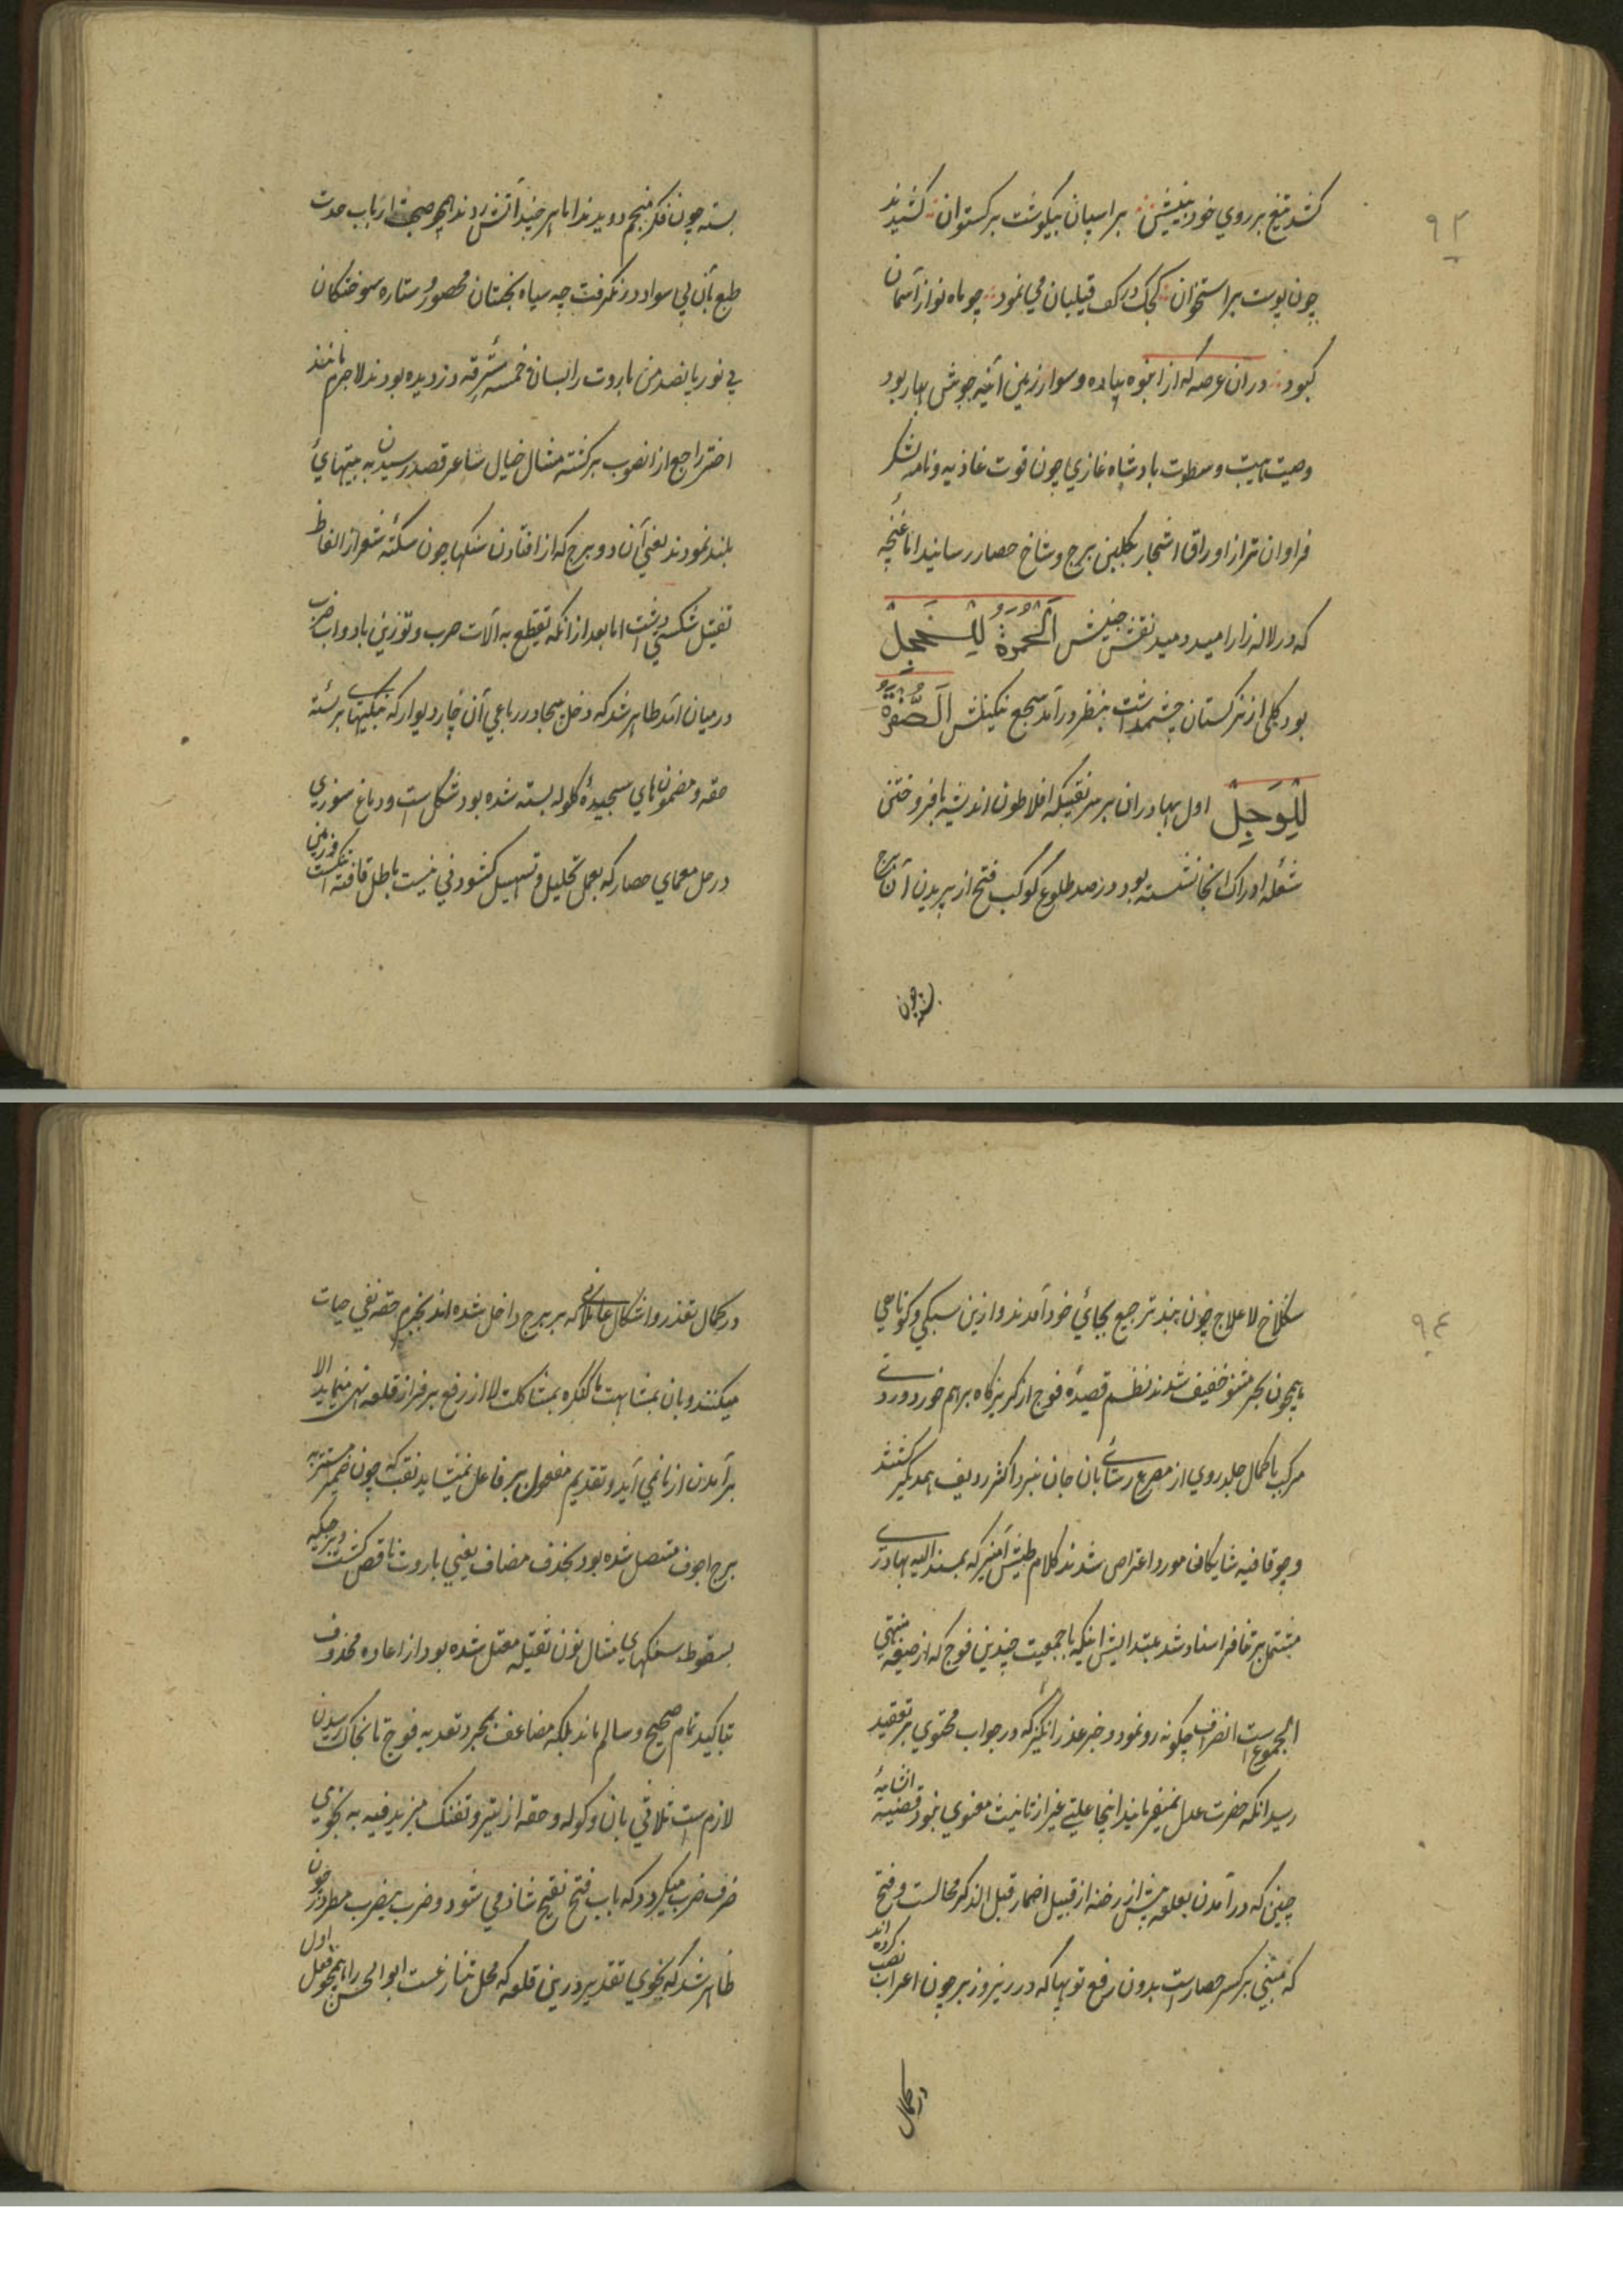 ۹۳
کشد تیغ بر روی خود بینیش ؞ بر اسپان بیگوشت برکستوان ؞ کشیدند
چون پوست بر استخوان ؞ کجک در کف فیلبان می نمود ؞ چو ماه نو از آسمان
کبود ؞ در ان عرصه که از انبوه پیاده و سوار زمین آئینه جوش بهار بود
وصیت هیبت و سطوت بادشاه غازی چون قوت غاذیه و نامیه لشکر
فراوان تر از اوراق اشجار بگلبن برج و شاخ حصار رسانید اما غنچه
که در لاله زار امید دمید نقش جنبش اَلْحُمْرَةُ لِلْخَجِلْ
بود و گلی از نرکستان چشمداشت بنظر در آمد سجع نگینش اَلصُّفْرَةُ
لِلْوَجِلْ اول بهادران بر سر نقبیکه افلاطون اندیشه بافروختن
شعله ادراک آنجا نشسته بود در رصد طلوع کوکب فتح از پریدن آن برج
بسته چون
بسته چون فکر منجم دویدند اما هر چند آتش زدند همچو صحبت ارباب حدت
طبع بآن بی سواد در نگرفت چه سیاه بختان محصور و ستاره سوختگان
بی نور پانصد من باروت را بسان خمسه مسترقه دزدیده بودند لاجرم مانند
اختر راجع از انصوب برگشته مثال خیال شاعر قصد رسیدن به بیتهای
بلند نمودند یعنی آن دو برج که از افتادن سنگها چون سکته شعر از الفاظ
ثقیل شکستی داشت اما بعد از انکه تقطیع به آلات حرب و توزین بادوات ضرب
در میان آمد ظاهر شد که دخل بیجا در رباعی آن چار دیوار که بنکتهای برسته
حقه و مضمون های سنجیده گلوله بسته شده بود مشکل است و دماغ سوزی
در حل معمای حصار که بعمل تحلیل و تسهیل کشودنی نیست باطل قافیه شکست و زمین
۹٤
سنگلاخ لاعلاج چون بند ترجیع بجای خود آمدند و ازین سبکی و کوتاهی
همچون بحر مثنو خفیف شدند نظم قصیده فوج از گریزگاه بر هم خورد و ردی
مرکب با کمال جلد روی از مصرع رسای بان جان نبرد اکثر ردیف همدیگر گشتند
و چو قافیه شایگان مورد اعتراض شدند کلام طیش آمیز که بمسند الیه بهادری
مشتمل بر تنافر اسناد شد مبتدایش اینکه با جمعیت چندین فوج که از صیغه منتهی
الجموع است انصراف چگونه رو نمود و خبر عذر انگیز که در جواب محتوی بر تعقید
رسید انکه حضرت عدل نمیفرمایند اینجا علتی غیر از تانیث معنوی نبود قضیه اتفاقیه
چنین که در آمدن بقلعه پیش از رخنه از قبیل اضمار قبل الذکر محالست و فتح
که مبنی بر کسر حصار است بدون رفع توپها که در زیر و زبر چون اعراب نصب کرده اند
در کمال
در کمال تعذر و اشکال عاملانی که بر برج داخل شده اند بجزم حقه نفی حیات
میکنند و بان بمشابهت ما کنگره بمشاکلت لا از رفع بر فراز قلعه نهی مینماید الا
بر آمدن از ما نمی آید و تقدیم مفعول بر فاعل نمیشاید نقب که چون ضمیر مستتر به
برج اجوف متصل شده بود بحذف مضاف یعنی باروت ناقص گشت و برجیکه
بسقوط سنگهای مثال نون ثقیله معتل شده بود از اعاده محذوف
بتاکید تمام صحیح و سالم ماند بلکه مضاعف بمجرد تعدیه فوج تا بخاک رسیدن
لازم است تلاقی بان و کوله و حقه از تیر و تفنگ مزید فیه به نحوی
صرف ضرب میگردد که باب فتح یفتح شاذ می شود و ضرب یضرب مطرد چون
ظاهر شد که نحوی تقدیر درین قلعه که محل تنازعست ابو الحسن را همچو فعل اول